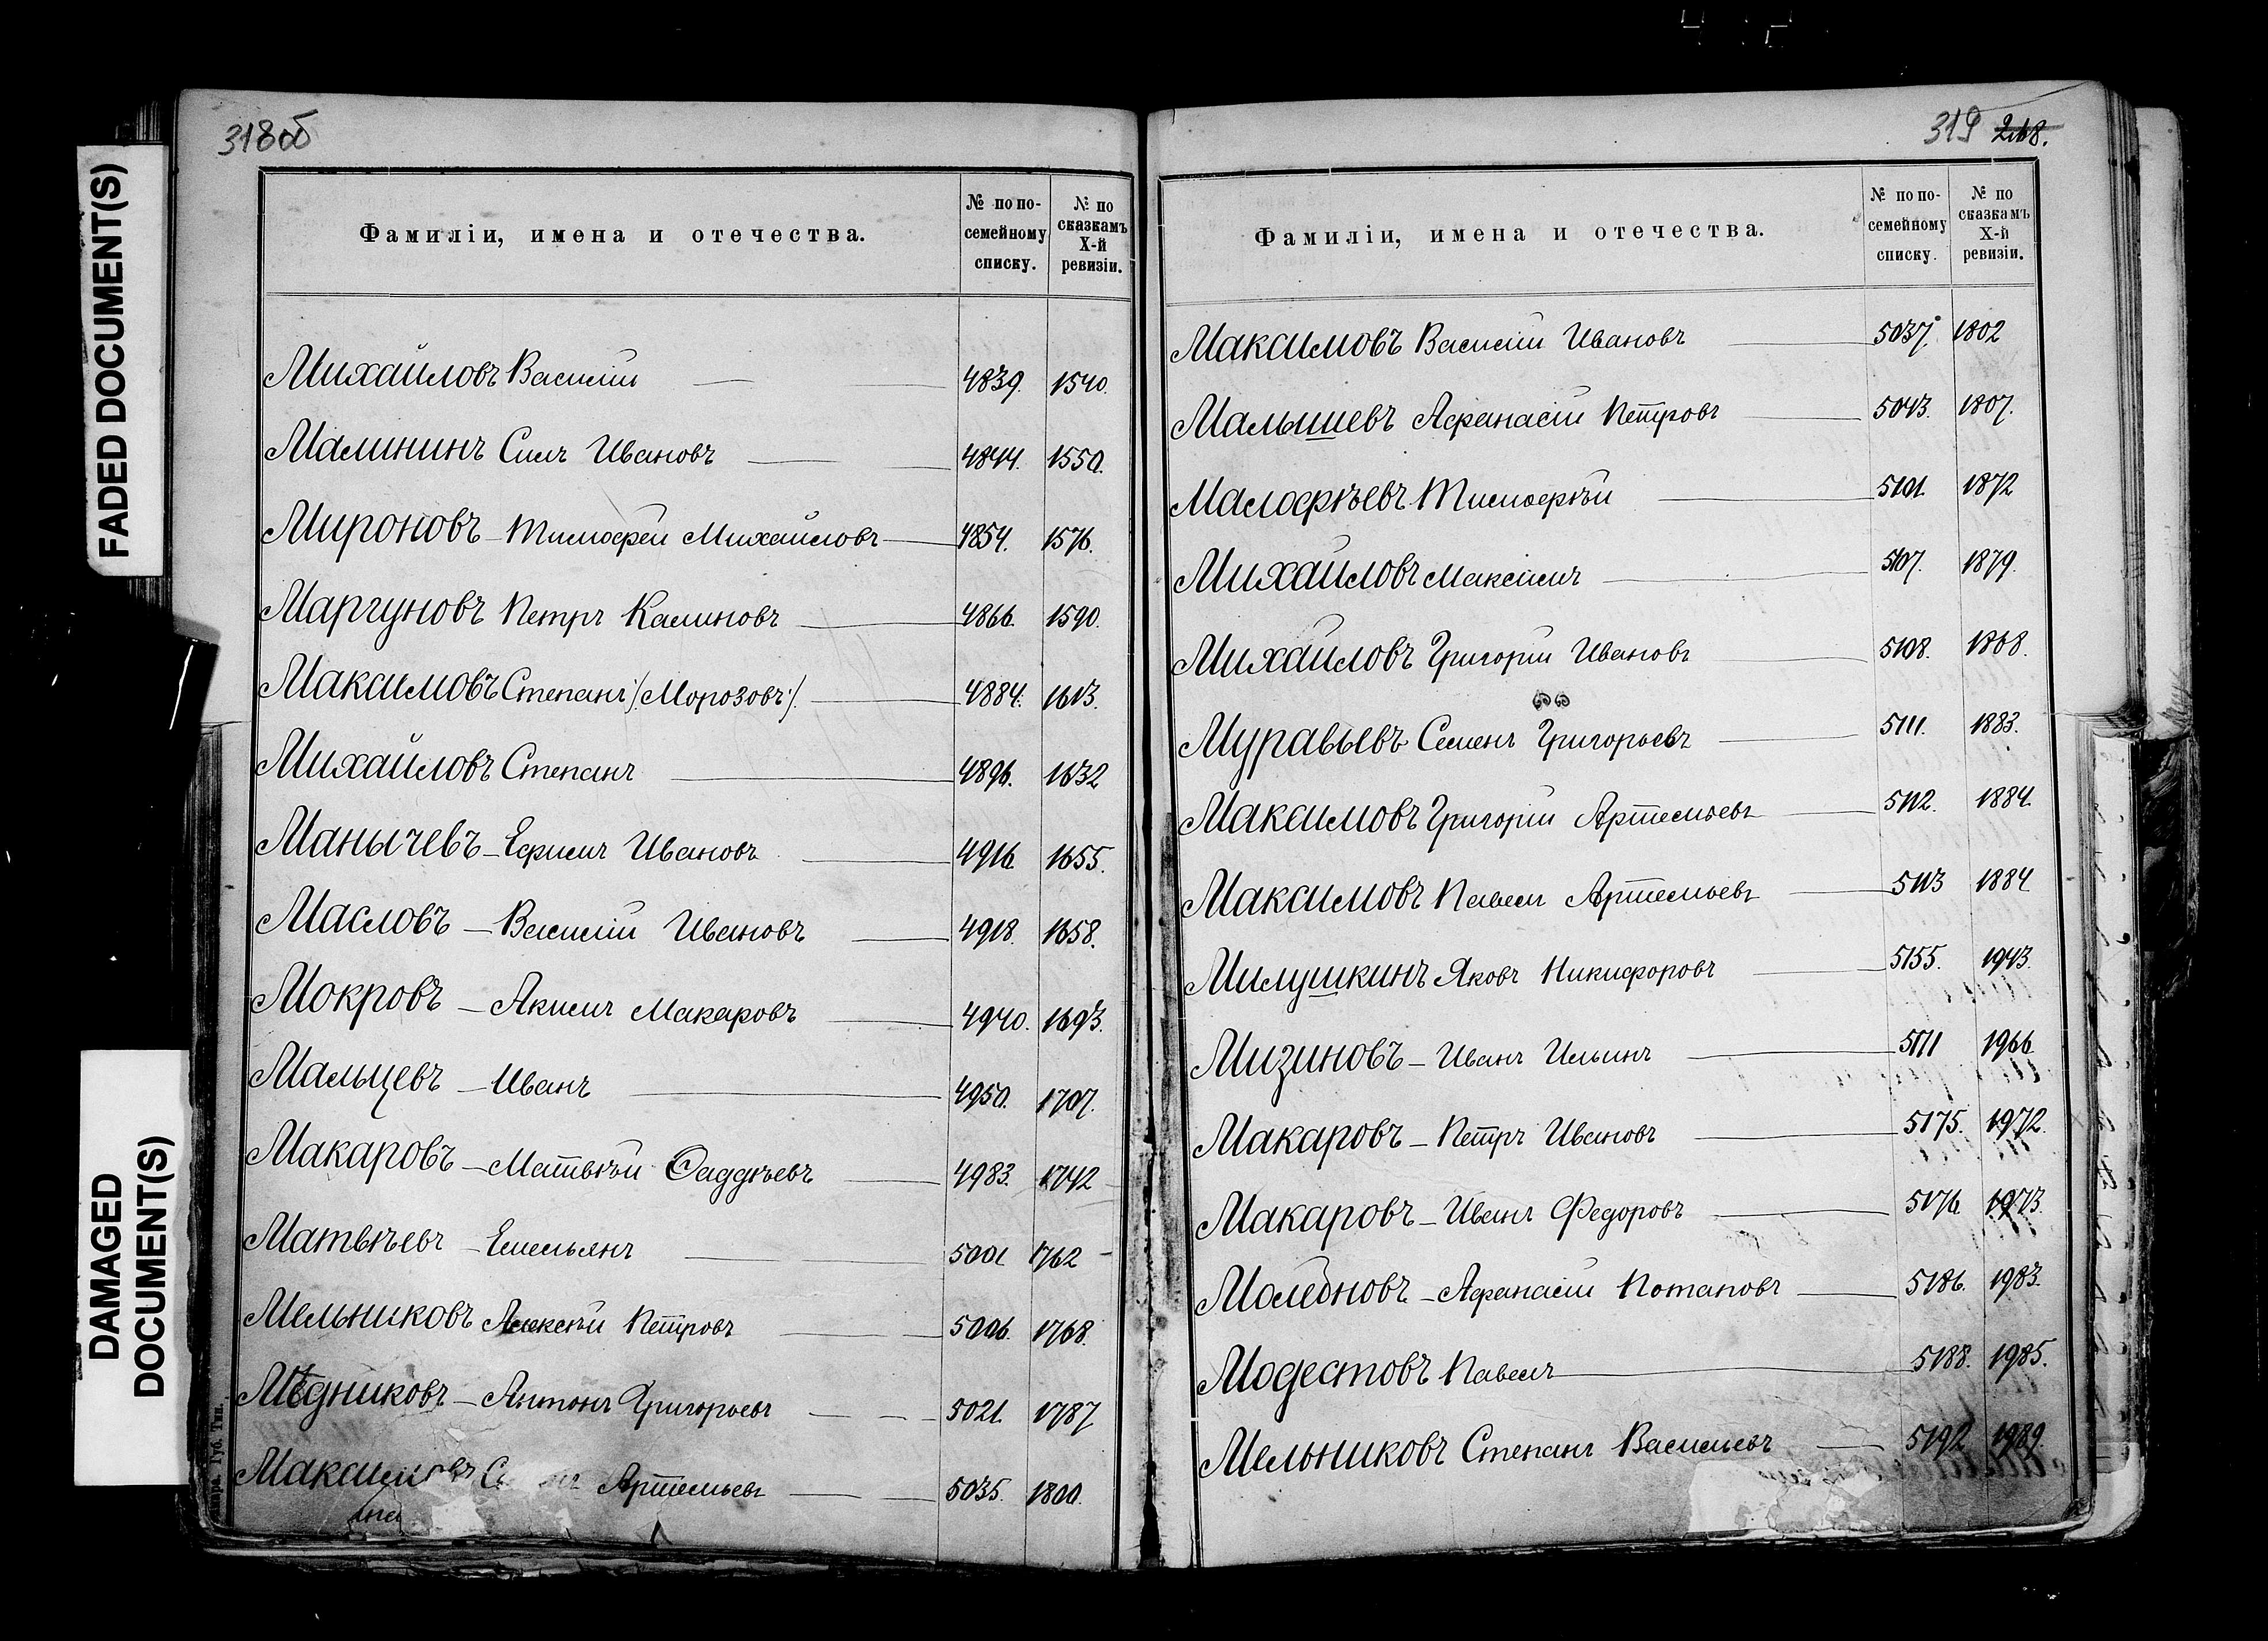 FADED DOCUMENT(S)
DAMAGED
DOCUMENT(S)
318об
Фамиліи, имена и отечества. № по по-семейному списку. № по сказкамъ X-й ревизіи.
Михайловъ Василій 4839. 1540.
Малининъ Силъ Ивановъ 4844. 1550.
Мироновъ Тимофей Михайловъ 4854. 1576.
Маргуновъ Петръ Калиновъ 4866. 1590.
Максимовъ Степанъ /:Морозовъ:/ 4884. 1613.
Михайловъ Степанъ 4896. 1632
Манычевъ Ефимъ Ивановъ 4916. 1655.
Масловъ Василій Ивановъ 4918. 1658.
Мокровъ Акимъ Макаровъ 4940. 1693.
Мальцевъ Иванъ 4950. 1707.
Макаровъ Матвѣй Фаддѣевъ 4983. 1742
Матвѣевъ Емельянъ 5001 1762
Мельниковъ Алексѣй Петровъ 5006. 1768.
Мѣдниковъ Антонъ Григорьевъ 5021. 1787
Максимовъ Артемьевъ 5035. 1800.
Губ. Тип.
319 268.
Фамиліи, имена и отечества. № по по-семейному списку. № по сказкамъ X-й ревизіи.
Максимовъ Василій Ивановъ 5037. 1802
Малышевъ Афанасій Петровъ 5043. 1807.
Малофѣевъ Тимофѣй 5101. 1872
Михайловъ Максимъ 5107. 1879.
Михайловъ Григорій Ивановъ 5108. 1868.
Муравьевъ Семенъ Григорьевъ 5111. 1883.
Максимовъ Григорій Артемьевъ 5112. 1884.
Максимовъ Павелъ Артемьевъ 5113 1884.
Милушкинъ Яковъ Никифоровъ 5155. 1943.
Мизиновъ Иванъ Ильинъ 5171 1966
Макаровъ Петръ Ивановъ 5175. 1972.
Макаровъ Иванъ Федоровъ 5176. 1973.
Афанасій Потаповъ 5186. 1983.
Модестовъ Павелъ 5188. 1985.
Мельниковъ Степанъ Васильевъ 5192 1989.